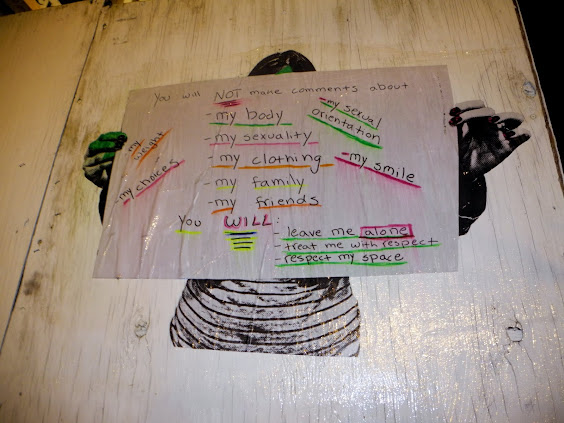 You will NOT make comments about
- my body
- my sexual
orientation
- my sexuality
- my weight
- my clothing
- my smile
- my choices
- my family
- my friends
You WILL:
- leave me alone
- treat me with respect
- respect my space